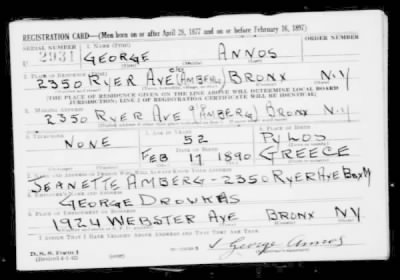 REGISTRATION CARD—(Men born on or after April 28, 1877 and on or before February 16, 1897)
SERIAL NUMBER 1. NAME (Print) ORDER NUMBER
U 2931 GEORGE ANNOS
2. PLACE OF RESIDENCE (Print)
2350 RYER AVE (AMBERG) BRONX N.Y
(THE PLACE OF RESIDENCE GIVEN ON THE LINE ABOVE WILL DETERMINE LOCAL BOARD
JURISDICTION; LINE 2 OF REGISTRATION CERTIFICATE WILL BE IDENTICAL)
3. MAILING ADDRESS
2350 RYER AVE (AMBERG) BRONX NY
4. TELEPHONE 5. AGE IN YEARS 6. PLACE OF BIRTH
NONE 52 PYLOS
FEB 17 1890 GREECE
JEANETTE AMBERG - 2350 RYER AVE BRX NY
GEORGE DROUKAS
1924 WEBSTER AVE BRONX N.Y.
I AFFIRM THAT I HAVE VERIFIED ABOVE ANSWERS AND THAT THEY ARE TRUE.
D. S. S. Form 1
(Revised 4-1-42)
George Annos